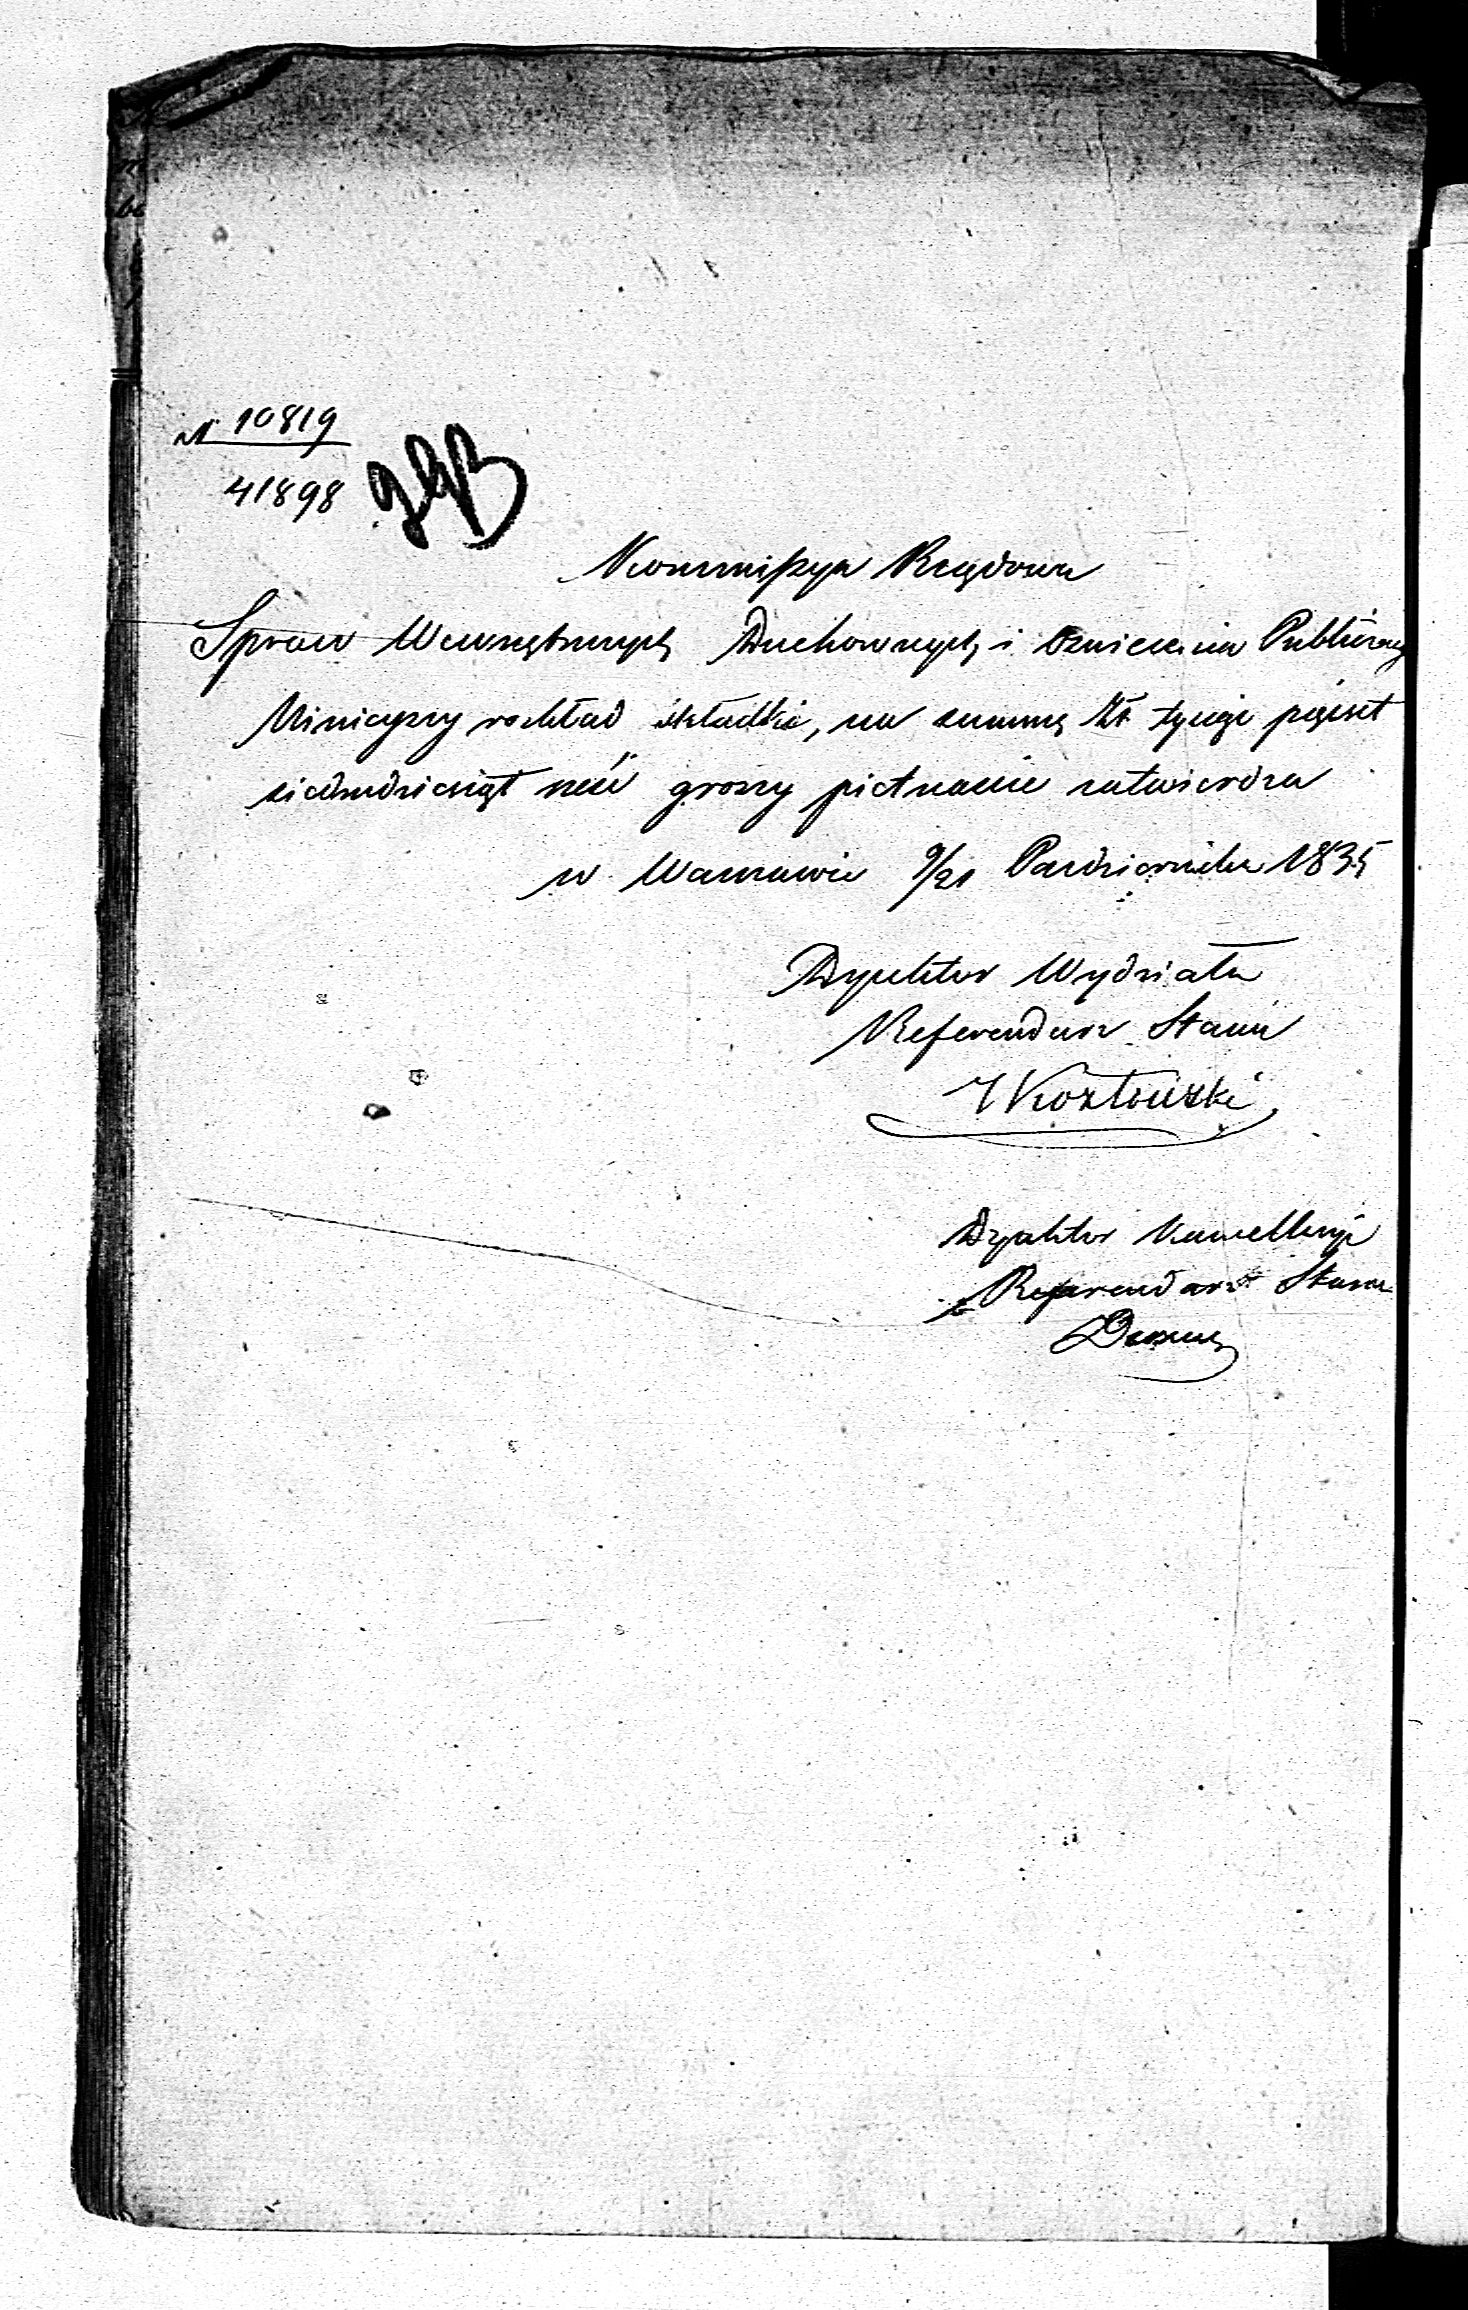 N 10819
41898
Kommissya Rządowa
Spraw Wewnętrznych, Duchownych, i Oświecenia Publicznego
Niniejszy rozkład składki, na summę Złt. tysiąc pięćset
siedmdziesiąt sześć groszy piętnaście zatwierdza
w Warszawie 9/21 Października 1835
Dyrektor Wydziału
Referendarz Stanu
Kozłowski
Dyrektor Kancellaryi
Referendarz Stanu